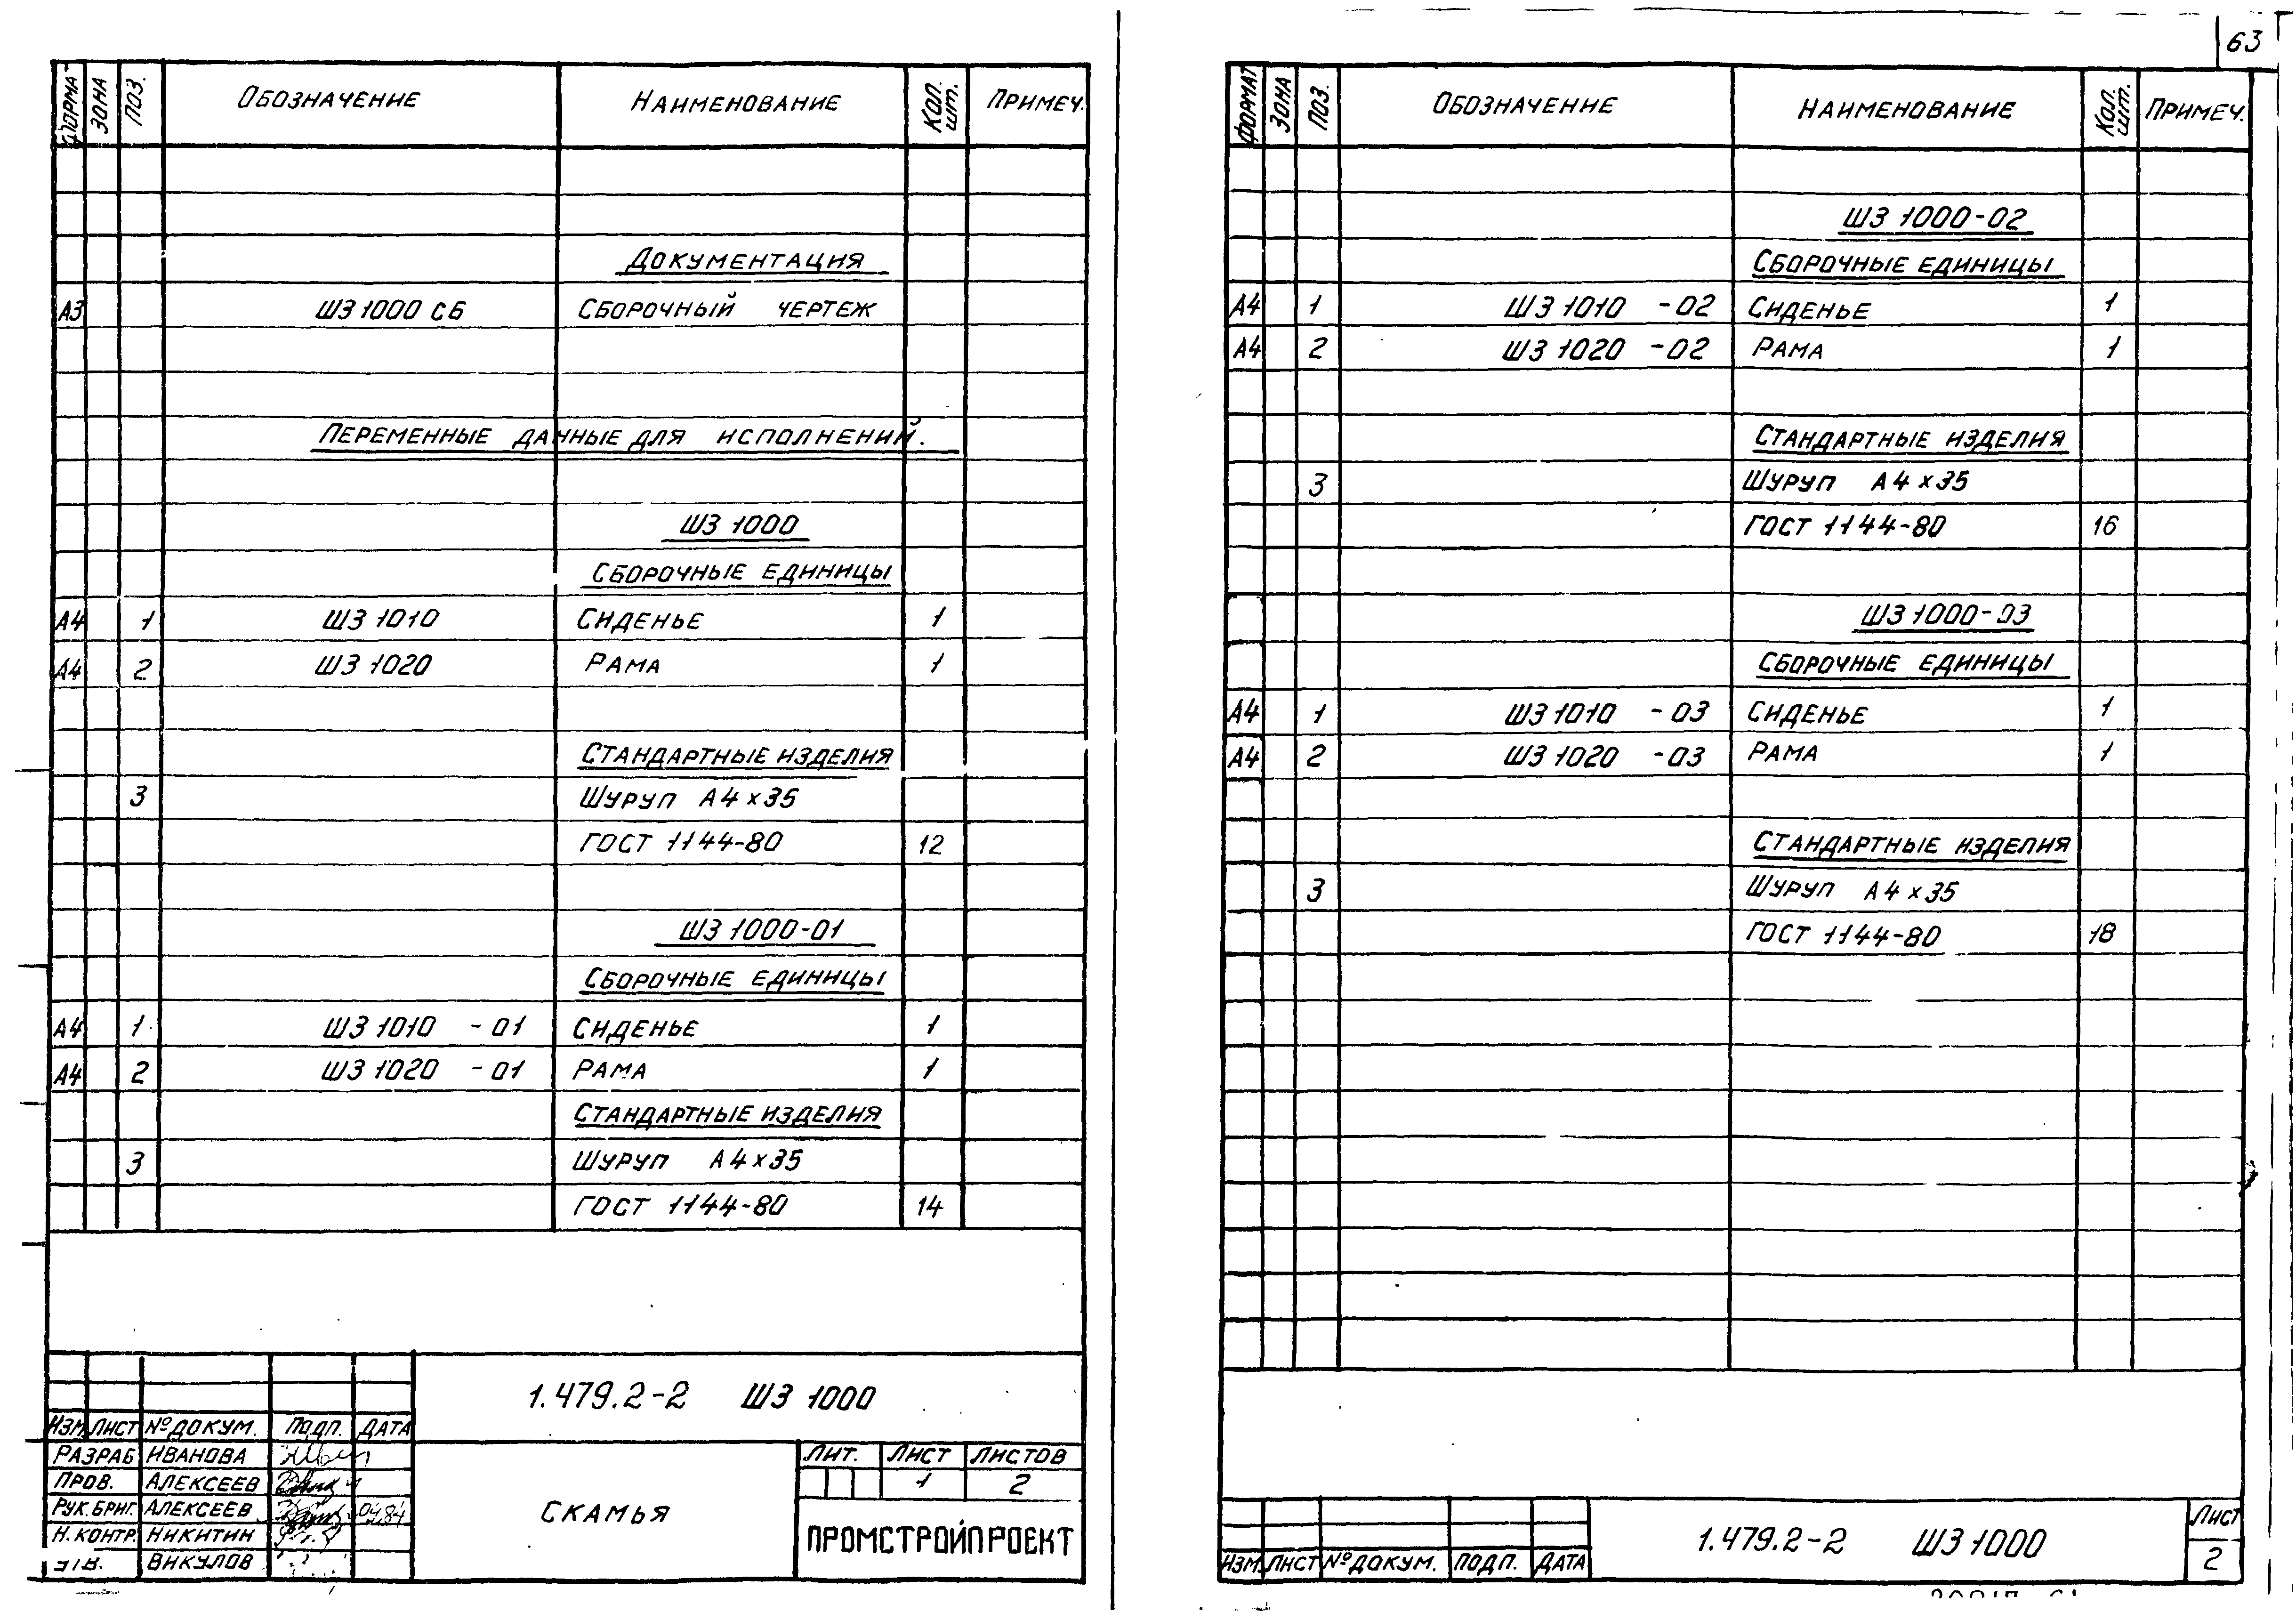 ФОРМАТ ЗОНА ПОЗ. ОБОЗНАЧЕНИЕ НАИМЕНОВАНИЕ КОЛ. ШТ. ПРИМЕЧ.
ДОКУМЕНТАЦИЯ
А3 ШЗ 1000 СБ СБОРОЧНЫЙ ЧЕРТЕЖ
ПЕРЕМЕННЫЕ ДАННЫЕ ДЛЯ ИСПОЛНЕНИЙ.
ШЗ 1000
СБОРОЧНЫЕ ЕДИНИЦЫ
А4 1 ШЗ 1010 СИДЕНЬЕ 1
А4 2 ШЗ 1020 РАМА 1
СТАНДАРТНЫЕ ИЗДЕЛИЯ
3 ШУРУП А4×35
ГОСТ 1144-80 12
ШЗ 1000-01
СБОРОЧНЫЕ ЕДИНИЦЫ
А4 1 ШЗ 1010 -01 СИДЕНЬЕ 1
А4 2 ШЗ 1020 -01 РАМА 1
СТАНДАРТНЫЕ ИЗДЕЛИЯ
3 ШУРУП А4×35
ГОСТ 1144-80 14
1.479.2-2 ШЗ 1000
ИЗМ. ЛИСТ № ДОКУМ. ПОДП. ДАТА
РАЗРАБ ИВАНОВА
ПРОВ. АЛЕКСЕЕВ
РУК.БРИГ. АЛЕКСЕЕВ 04.84
Н.КОНТР. НИКИТИН
УТВ. ВИКУЛОВ
СКАМЬЯ
ЛИТ. ЛИСТ ЛИСТОВ
1 2
ПРОМСТРОЙПРОЕКТ
63
ФОРМАТ ЗОНА ПОЗ. ОБОЗНАЧЕНИЕ НАИМЕНОВАНИЕ КОЛ. ШТ. ПРИМЕЧ.
ШЗ 1000-02
СБОРОЧНЫЕ ЕДИНИЦЫ
А4 1 ШЗ 1010 -02 СИДЕНЬЕ 1
А4 2 ШЗ 1020 -02 РАМА 1
СТАНДАРТНЫЕ ИЗДЕЛИЯ
3 ШУРУП А4×35
ГОСТ 1144-80 16
ШЗ 1000-03
СБОРОЧНЫЕ ЕДИНИЦЫ
А4 1 ШЗ 1010 -03 СИДЕНЬЕ 1
А4 2 ШЗ 1020 -03 РАМА 1
СТАНДАРТНЫЕ ИЗДЕЛИЯ
3 ШУРУП А4×35
ГОСТ 1144-80 18
ИЗМ. ЛИСТ № ДОКУМ. ПОДП. ДАТА
1.479.2-2 ШЗ 1000
ЛИСТ
2